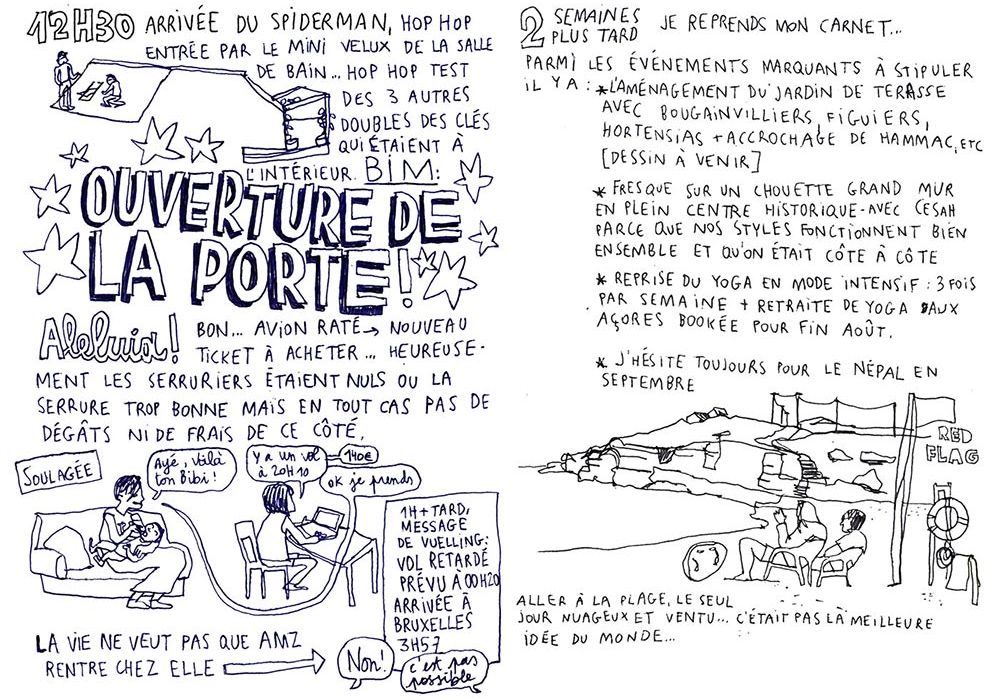 12H30 ARRIVÉE DU SPIDERMAN, HOP HOP
ENTRÉE PAR LE MINI VELUX DE LA SALLE
DE BAIN... HOP HOP TEST
DES 3 AUTRES
DOUBLES DES CLÉS
QUI ÉTAIENT À
L'INTÉRIEUR. BIM:
OUVERTURE DE
LA PORTE!
Aleluia!
BON... AVION RATÉ → NOUVEAU
TICKET À ACHETER... HEUREUSE-
MENT LES SERRURIERS ÉTAIENT NULS OU LA
SERRURE TROP BONNE MAIS EN TOUT CAS PAS DE
DÉGÂTS NI DE FRAIS DE CE CÔTÉ.
SOULAGÉE
Ayé, voilà
ton Bibi!
Y a un vol
à 20H10
140€
OK je prends
1H + TARD,
MESSAGE
DE VUELLING:
VOL RETARDÉ
PRÉVU A 00H20
ARRIVÉE À
BRUXELLES
3H57
LA VIE NE VEUT PAS QUE AMZ
RENTRE CHEZ ELLE
Non!
c'est pas
possible
2 SEMAINES
PLUS TARD
JE REPRENDS MON CARNET...
PARMI LES ÉVÉNEMENTS MARQUANTS À STIPULER
IL Y A : * L'AMÉNAGEMENT DU JARDIN DE TERASSE
AVEC BOUGAINVILLIERS, FIGUIERS,
HORTENSIAS + ACCROCHAGE DE HAMMAC, ETC
[DESSIN À VENIR]
* FRESQUE SUR UN CHOUETTE GRAND MUR
EN PLEIN CENTRE HISTORIQUE - AVEC CESAH
PARCE QUE NOS STYLES FONCTIONNENT BIEN
ENSEMBLE ET QU'ON ÉTAIT CÔTE À CÔTE
* REPRISE DU YOGA EN MODE INTENSIF : 3 FOIS
PAR SEMAINE + RETRAITE DE YOGA AUX
AÇORES BOOKÉE POUR FIN AOÛT.
* J'HÉSITE TOUJOURS POUR LE NÉPAL EN
SEPTEMBRE
RED
FLAG
ALLER À LA PLAGE, LE SEUL
JOUR NUAGEUX ET VENTU... C'ÉTAIT PAS LA MEILLEURE
IDÉE DU MONDE...